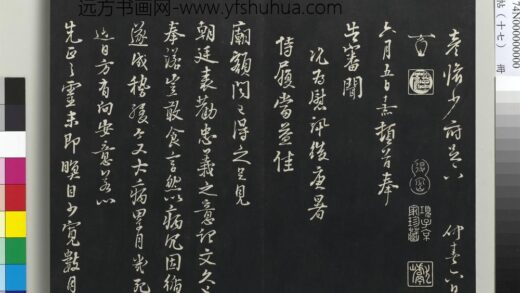 远方书画网-www.yfshuhua.com
帖（十七）
彥脩少府足下
六月五日熹頓首奉
告審聞
比為慰訊後庚暑
侍履當益佳
廟額聞已得之足見
朝廷表勸忠義之意記文久已
奉諾豈敢食言然以病冗因循
遂成稽緩今又大病畢月幾死
近日方有向安意若以
先正之靈未即瞑目少寬數月